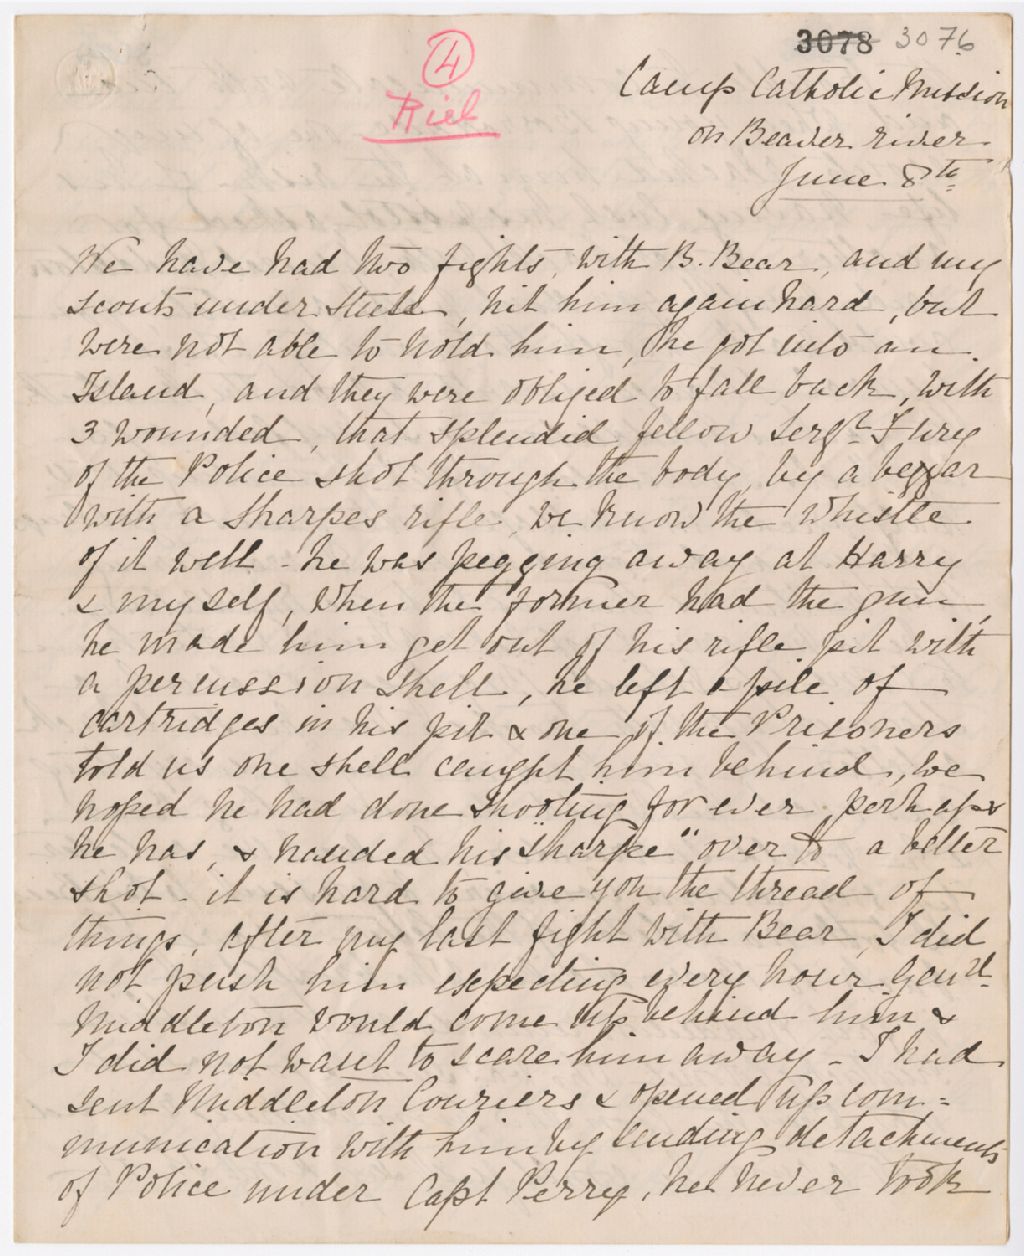 3078 3076
4
Riel
Camp Catholic Mission
on Beaver river
June 8th
We have had two fights, with B. Bear, and my
scouts under Steele, hit him again hard, but
were not able to hold him, he got into an
Island, and they were obliged to fall back, with
3 wounded, that splendid fellow Sergt Fury
of the Police shot through the body, by a beggar
with a Sharpes rifle, we know the whistle
of it well - he was pegging away at Harry
& myself, when the former had the gun,
he made him get out of his rifle pit with
a percussion shell, he left a pile of
cartridges in his pit & one of the Prisoners
told us one shell caught him behind, we
hoped he had done shooting for ever perhaps
he has, & handed his "Sharpe" over to a better
shot - it is hard to give you the thread of
things, after my last fight with Bear, I did
not push him expecting every hour Genl.
Middleton would come up behind him &
I did not want to scare him away - I had
sent Middleton Couriers & opened up com=
munication with him by sending detachments
of Police under Capt Perry, he never took